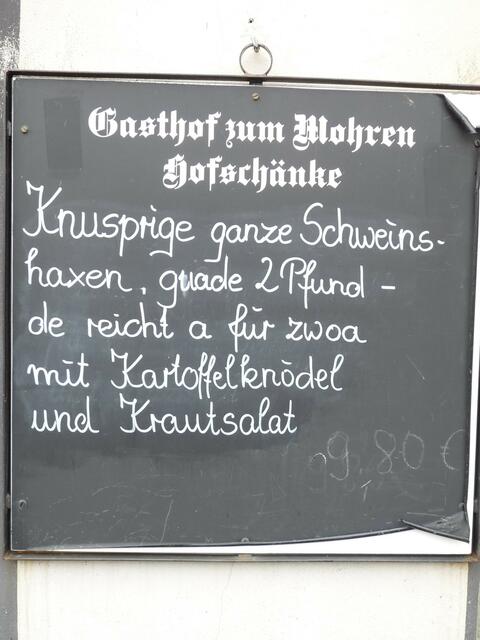 Gasthof zum Mohren
Hofschänke
Knusprige ganze Schweins-
haxen, guade 2 Pfund -
de reicht a für zwoa
mit Kartoffelknödel
und Krautsalat
9.80 €